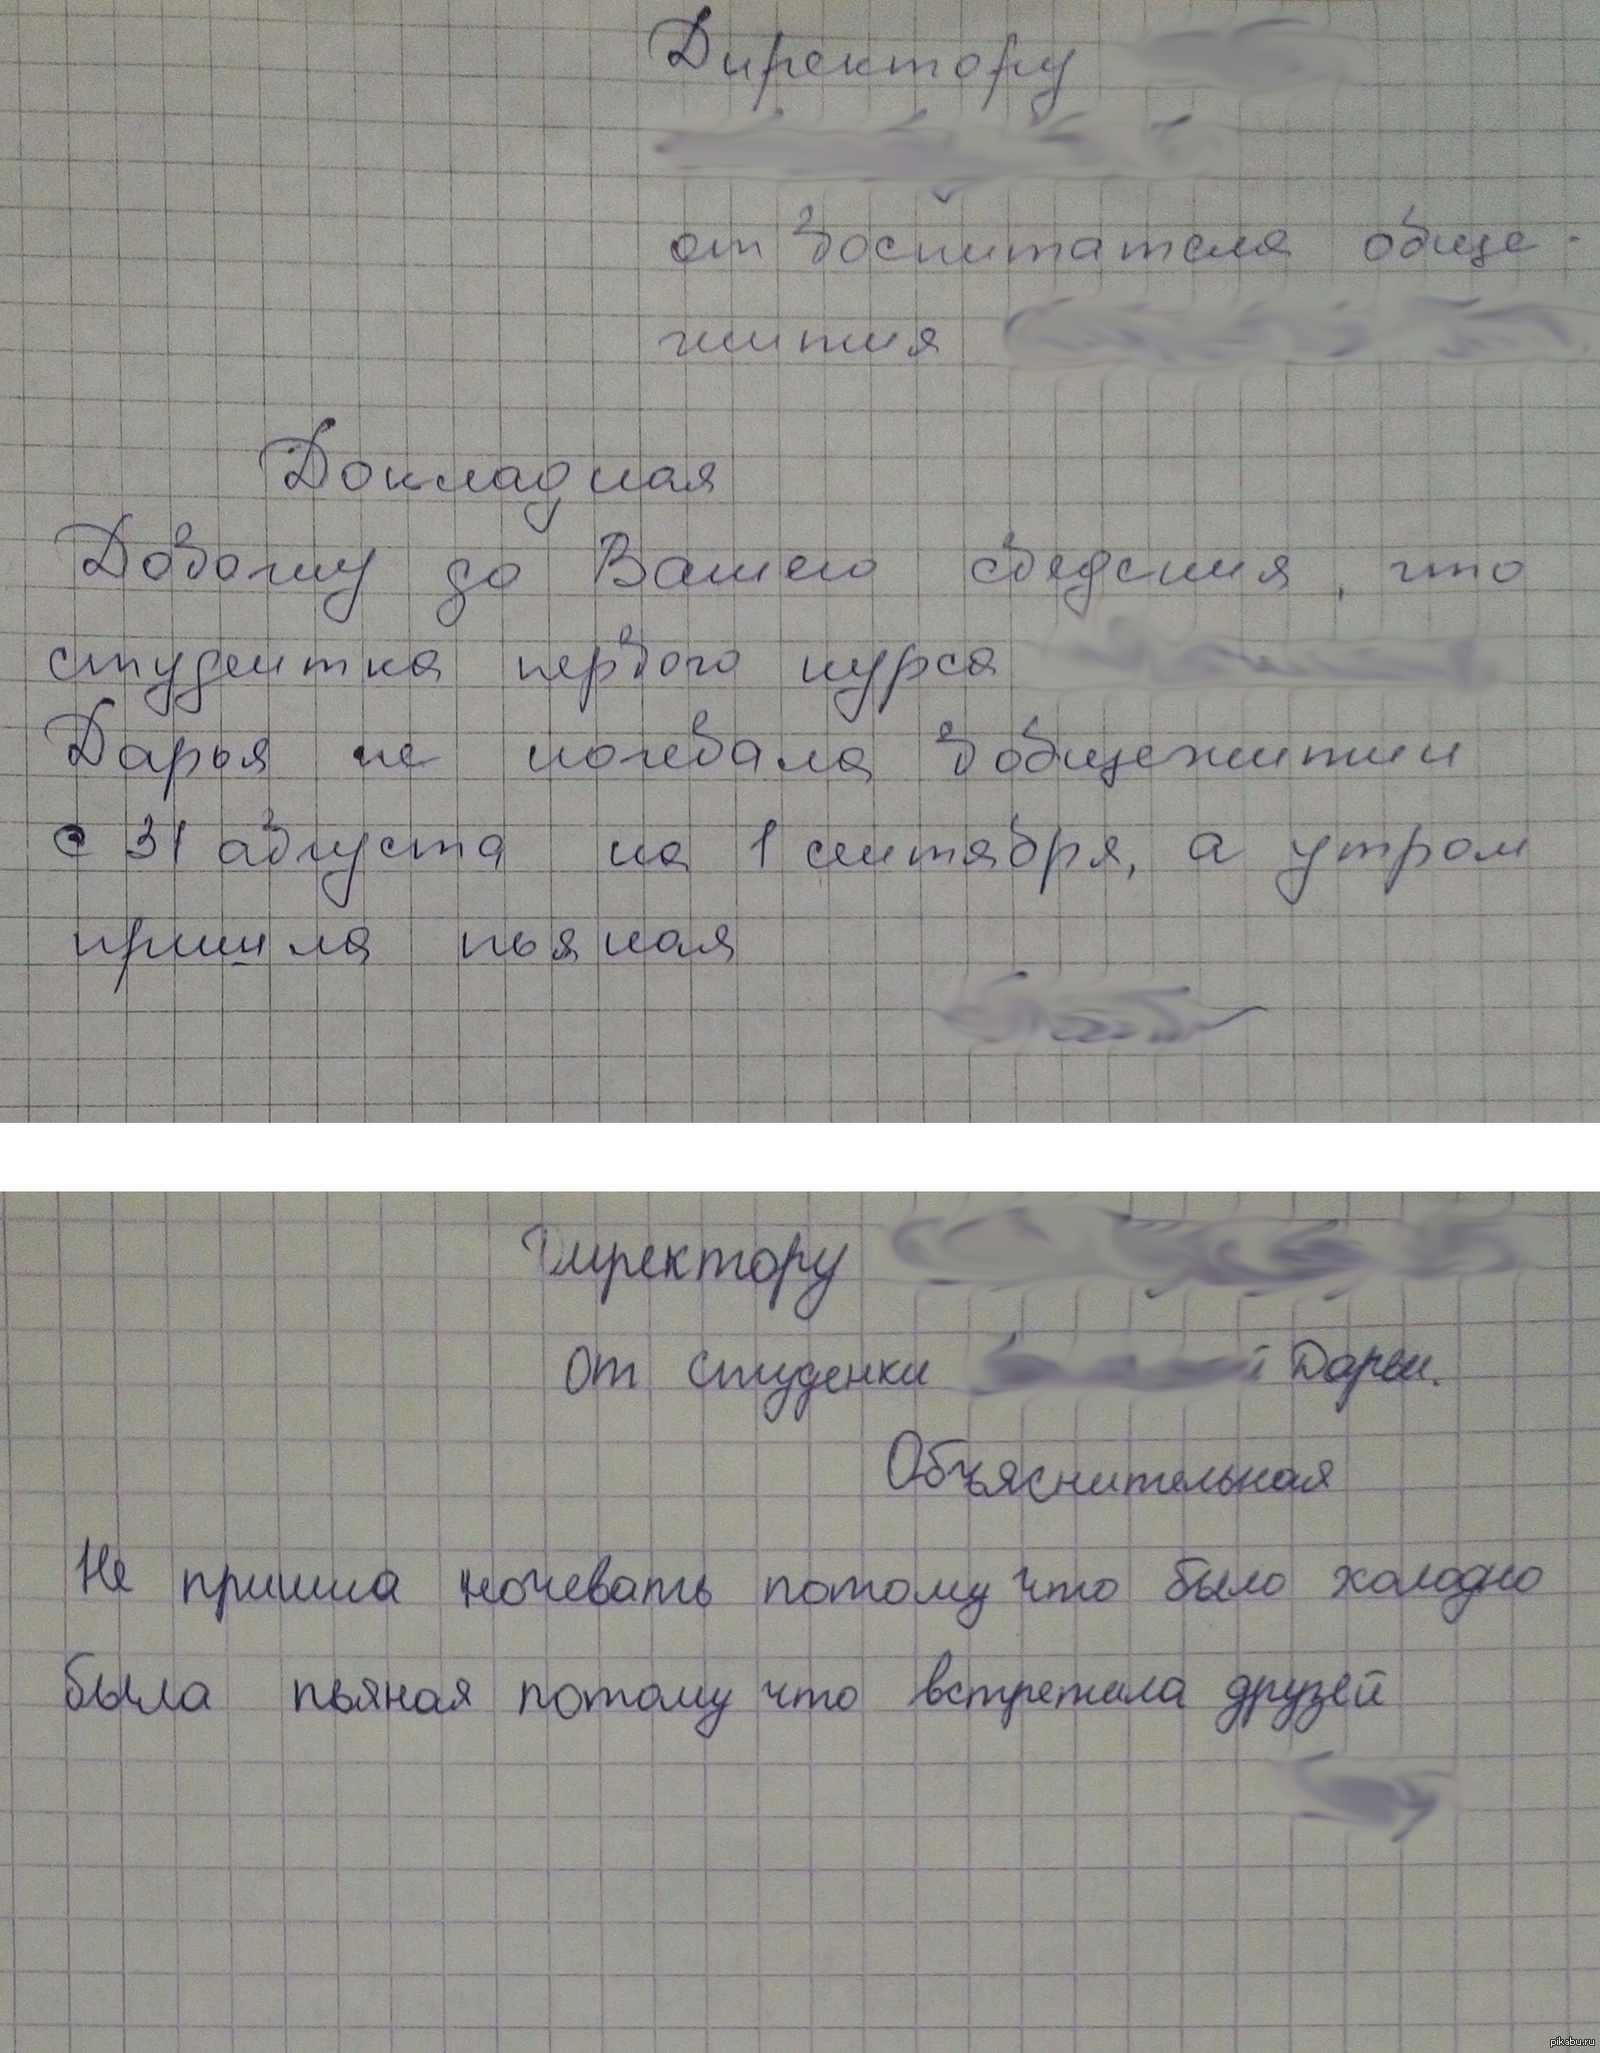 Директору
от воспитателя обще-
жития
Докладная
Довожу до Вашего сведения, что
студентка первого курса
Дарья не ночевала в общежитии
с 31 августа на 1 сентября, а утром
пришла пьяная
Директору
От студенки Дарьи.
Объяснительная
Не пришла ночевать потому что было холодно
была пьяная потому что встретила друзей
pikabu.ru